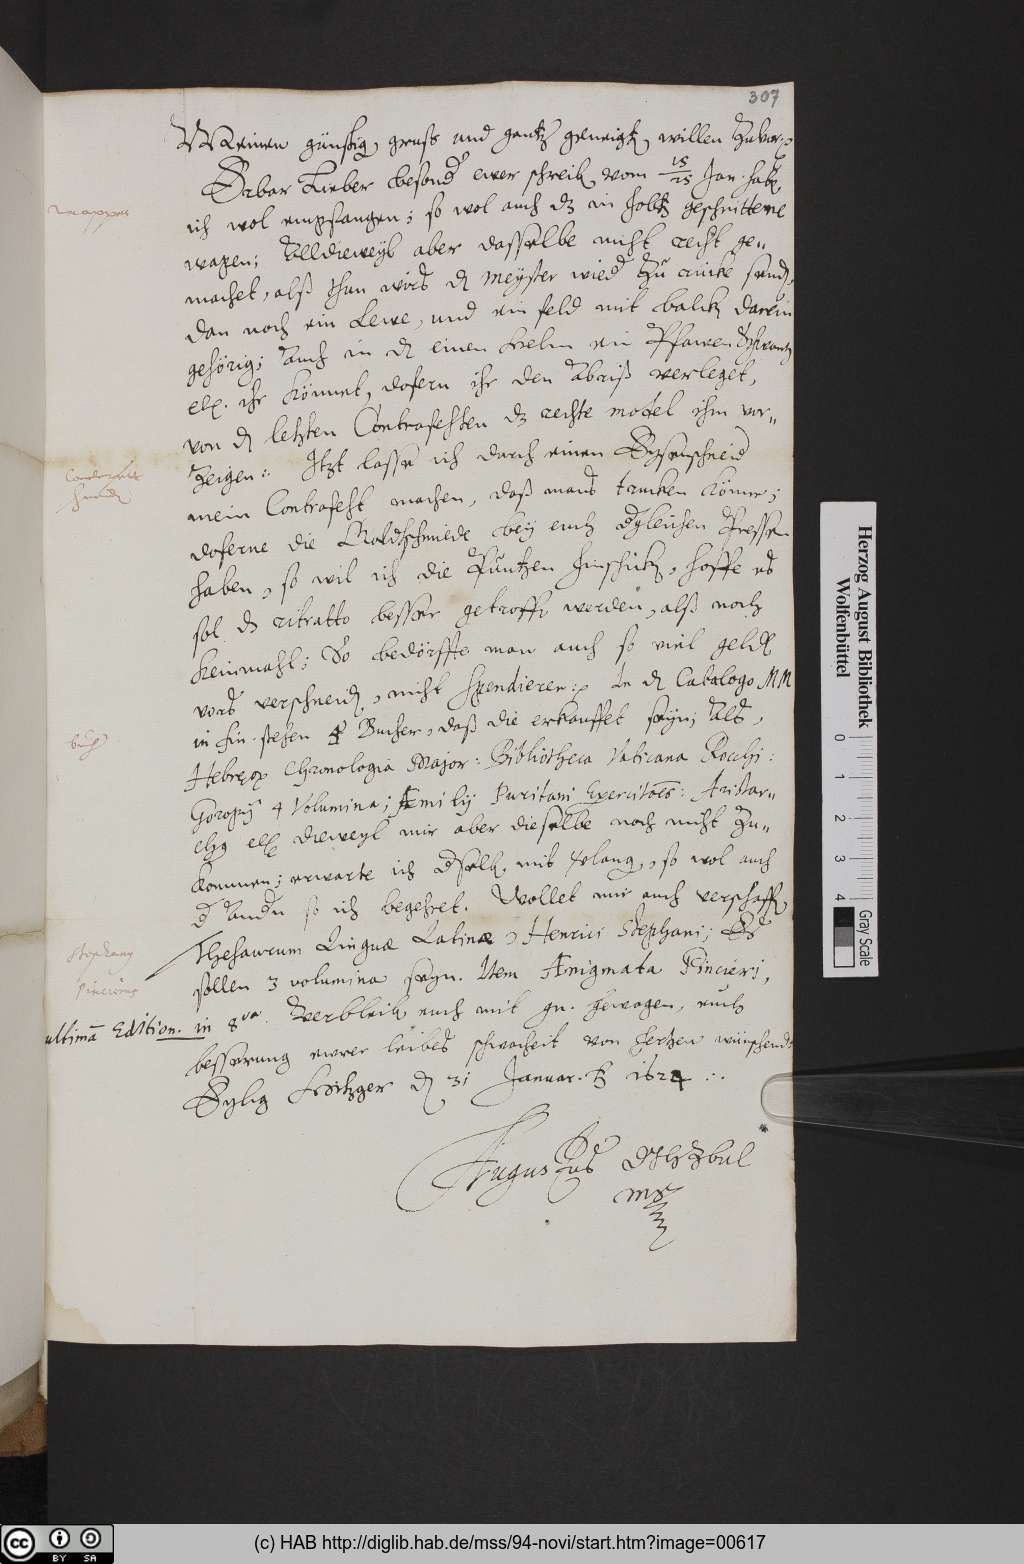 307
Meinen günstig. gruß und gantz geneigt. willen zuvor,
Erbar Lieber besond. ewer schreib. vom 15/25 Jan. hab
ich wol empfangen; so wol auch dz in holtz geschnittene
wapen; Alldieweyl aber dasselbe nicht recht ge-
machet, alß thun wirs d. meyster wied. zu rücke send.
dan noch ein Lewe, und ein feld mit balck. darein
gehörig; Auch in d. einen helm ein Pfawen Schwantz
etc. ihr könnet, dofern ihr den Abriß verleget,
von d. letzten Contrafehten dz rechte model ihm vor-
zeigen: Itzt lasse ich durch einen Eysenschneid.
mein Contrafeht machen, daß mans trucken könne;
doferne die Goldschmiede bey euch dgleichen Pressen
haben, so wil ich die Puntzen hinschick. hoffe es
sol dz ritratto besser getroff. werden, alß noch
keinmahl; So bedörffte man auch so viel geld.
vors verschneid. nicht spendieren: In d. Catalogo MM
in fin. stehen 4 Bucher, daß die erkauffet seyn; Als,
Hebreor Chronologia Major: Bibliotheca Vaticana Rocchi:
Goropij 4 Volumina; Æmilij Puritani Exercitões: Aristar-
chg etc dieweyl mir aber dieselbe noch nicht zu-
kommen; erwarte ich dselb. mit verlang. so wol auch
d. Andn so ich begehret. Wollet mir auch verschaff.
Thesaurum Linguæ Latinæ Henrici Stephani; Es
sollen 3 volumina seyn. Item Ænigmata Pincieri,
ultimã Edition. in 8vo. Verbleib. euch mit gn. gewogen, euch
besserung ewrer leibes schwacheit von hertzen wünschende
Eylig Hitzger d. 31 Januar. 1624
Augustus
Wappen
Contrafeht
buch
Stephany
Pincierus
Herzog August Bibliothek
Wolfenbüttel
0 1 2 3 4
Gray Scale
CC BY SA
(c) HAB http://diglib.hab.de/mss/94-novi/start.htm?image=00617